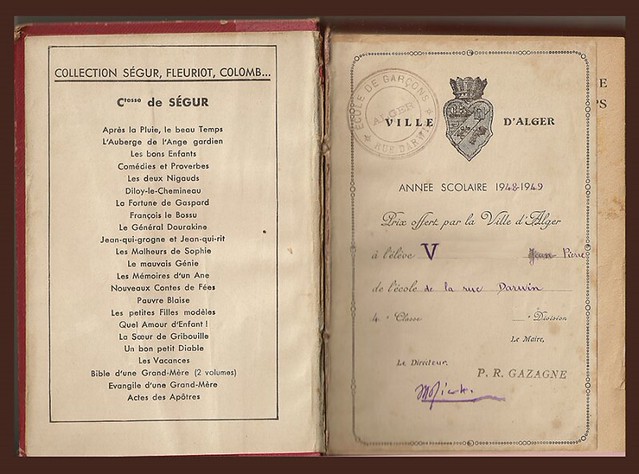 COLLECTION SÉGUR, FLEURIOT, COLOMB...
Ctesse de SÉGUR
Après la Pluie, le beau Temps
L'Auberge de l'Ange gardien
Les bons Enfants
Comédies et Proverbes
Les deux Nigauds
Diloy-le-Chemineau
La Fortune de Gaspard
François le Bossu
Le Général Dourakine
Jean-qui-grogne et Jean-qui-rit
Les Malheurs de Sophie
Le mauvais Génie
Les Mémoires d'un Ane
Nouveaux Contes de Fées
Pauvre Blaise
Les petites Filles modèles
Quel Amour d'Enfant !
La Sœur de Gribouille
Un bon petit Diable
Les Vacances
Bible d'une Grand-Mère (2 volumes)
Evangile d'une Grand-Mère
Actes des Apôtres
ÉCOLE DE GARÇONS
ALGER
RUE DARWIN
VILLE D'ALGER
ANNÉE SCOLAIRE 1948-1949
Prix offert par la Ville d'Alger
à l'élève V Jean Pierre
de l'école de la rue Darwin
4e Classe e Division
Le Maire,
Le Directeur,
P. R. GAZAGNE
E
PS